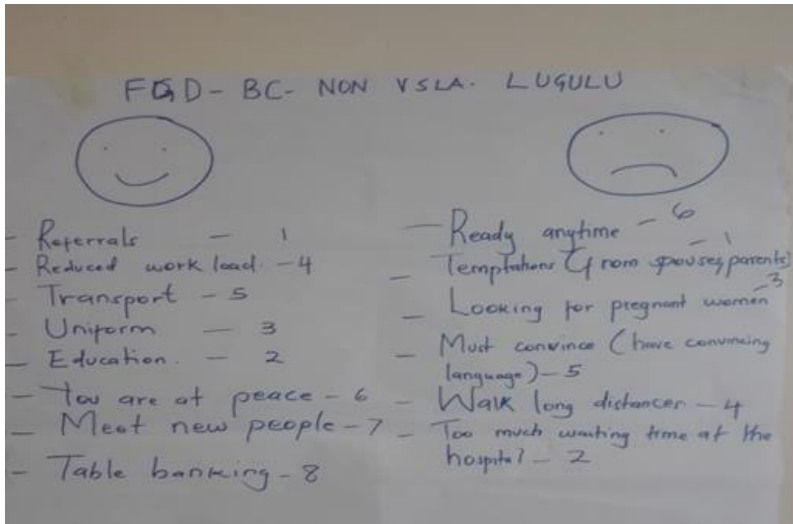 FGD - BC - NON VSLA. LUGULU
- Referrals - 1
- Reduced work load. - 4
- Transport - 5
- Uniform - 3
- Education. - 2
- You are at peace - 6
- Meet new people - 7
- Table banking - 8
- Ready anytime - 6
- Temptations (from spouses, parents) - 1
- Looking for pregnant women - 3
- Must convince (have convincing
language) - 5
- Walk long distances - 4
- Too much waiting time at the
hospital - 2